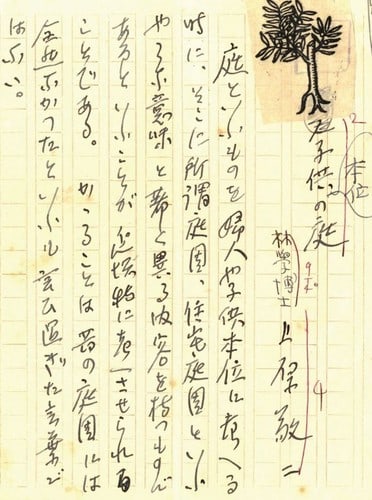 子供本位の庭
林學博士 上原敬二
庭といふものを婦人や子供本位に考へる
時に、そこに所謂庭園、住宅庭園といふ
やうな意味と異る内容を持つもので
あるといふことが近頃特に考へさせられる
ことである。かゝることは昔の庭園には
全然なかつたといふも言ひ過ぎた言葉で
はない。